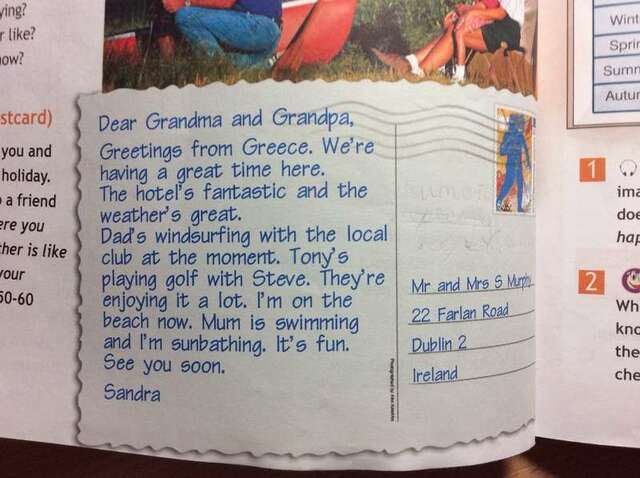 ying?
r like?
ow?
stcard)
you and
holiday.
a friend
ere you
ther is like
your
50-60
Dear Grandma and Grandpa,
Greetings from Greece. We're
having a great time here.
The hotel's fantastic and the
weather's great.
Dad's windsurfing with the local
club at the moment. Tony's
playing golf with Steve. They're
enjoying it a lot. I'm on the
beach now. Mum is swimming
and I'm sunbathing. It's fun.
See you soon.
Sandra
Mr and Mrs S Murphy
22 Farlan Road
Dublin 2
Ireland
Wint
Sprin
Summ
Autur
1
ima
doe
hap
2
Wh
kno
the
che